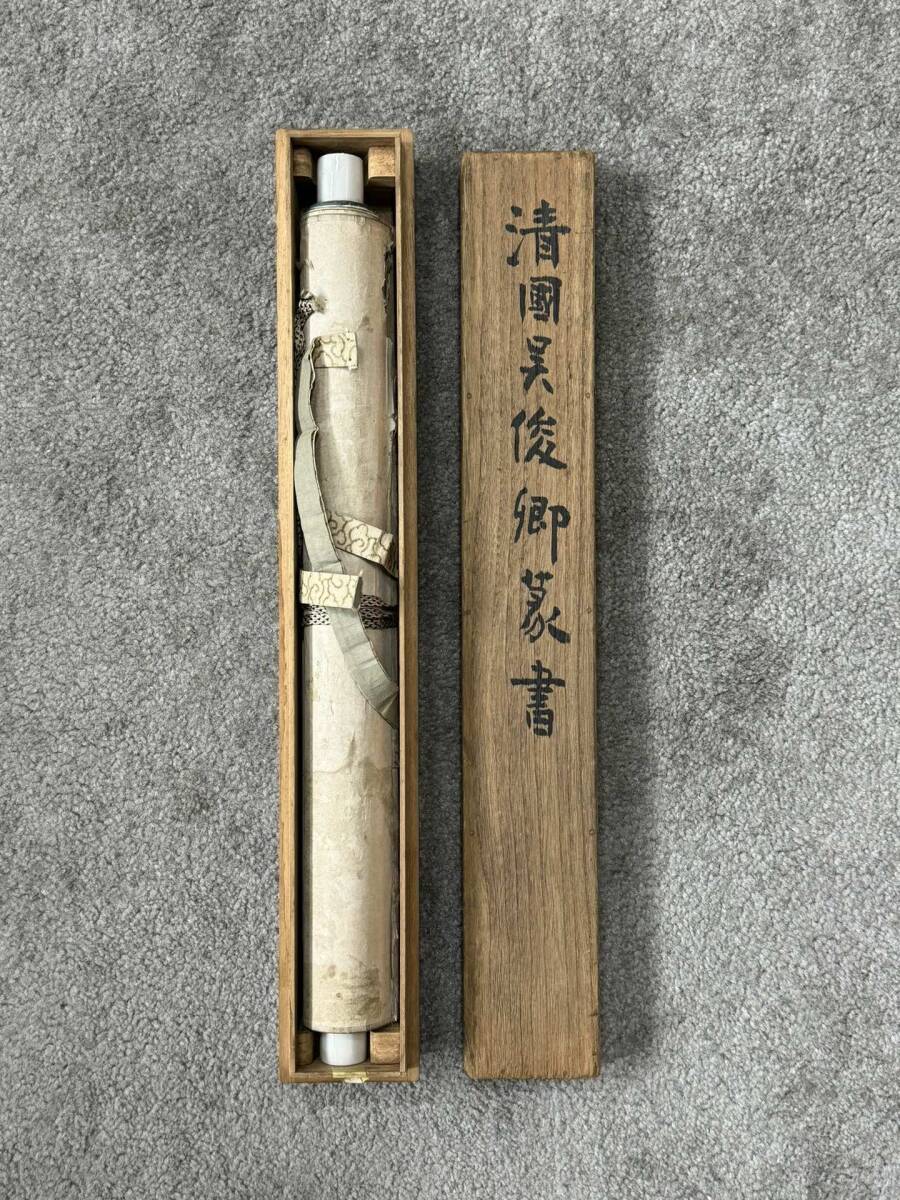 清國吴俊卿篆書